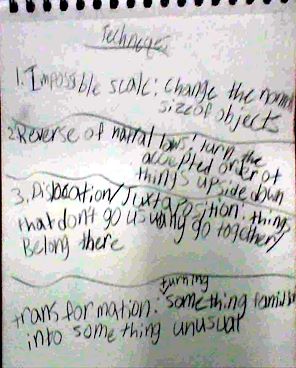 Techneqes
1. Impossible scale: change the normal
size of objects
2 Reverse of natral laws: turn the
accepted order of
things upside down
3. Dislocation/Juxtaposition: things
that don't go usually go together/
Belong there
turning
transformation: something familiar
into something unusual